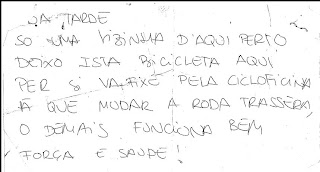 JA TARDE
SO UMA VIZINHA D'AQUI PERTO
DEIXO ISTA BICICLETA AQUI
PER SI VA FIXE PELA CICLOFICINA
A QUE MUDAR A RODA TRASSERA,
O DEMAIS FUNCIONA BEM
FORÇA E SAUDE!